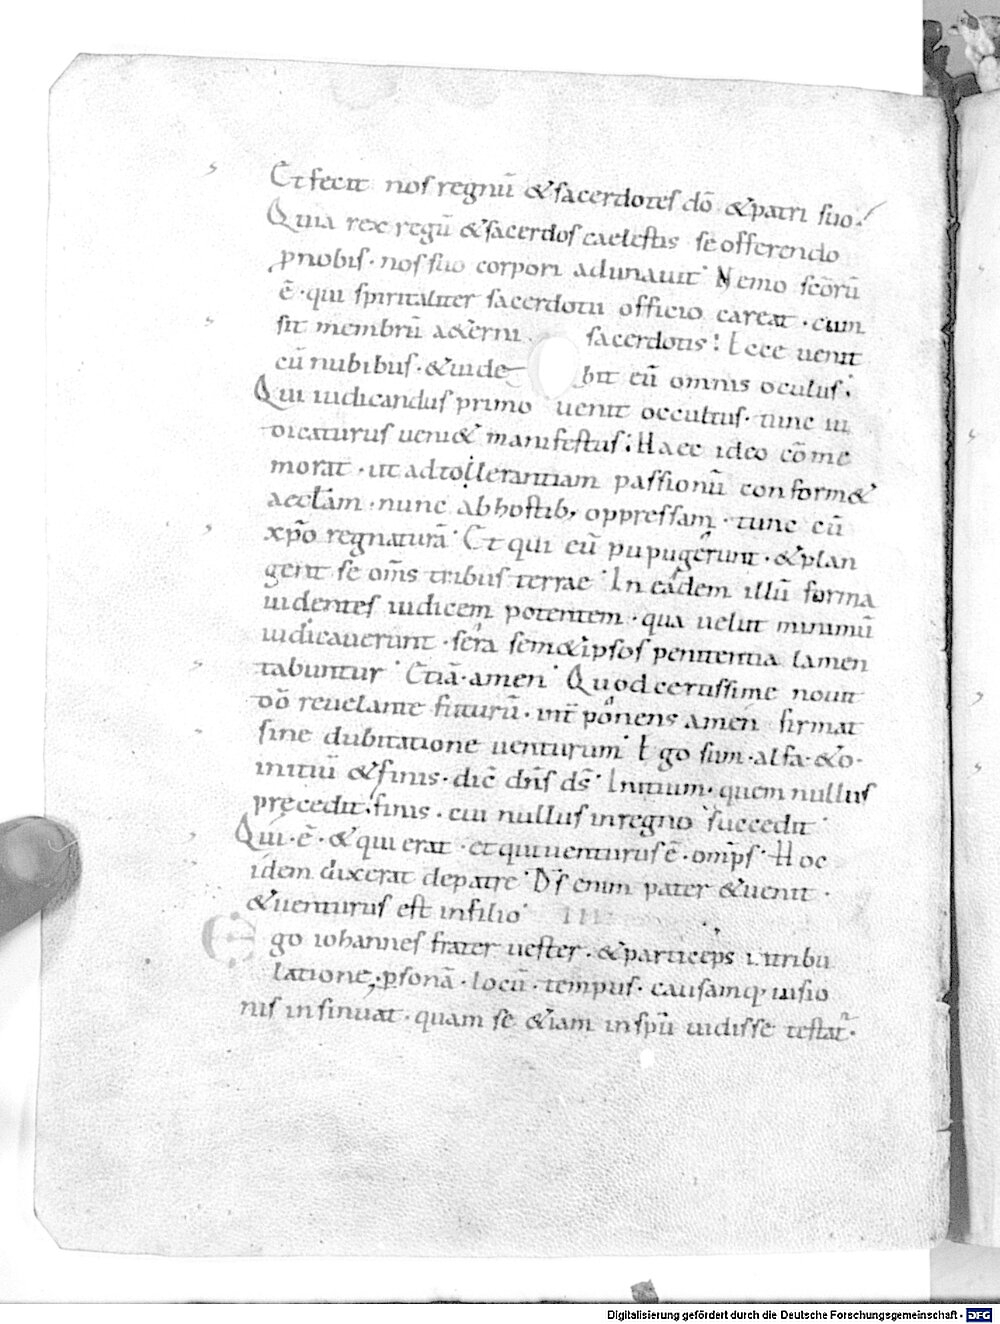 Et fecit nos regnū & sacerdotes dō & patri suo.
Quia rex regū & sacerdos caelestis se offerendo
pnobis· nos suo corpori adunauit· Nemo scōrū
ē· qui spiritaliter sacerdotii officio careat· cum
sit membrū aeterni sacerdotis! Ecce uenit
cū nubibus· & uidebit eū omnis oculus·
Qui iudicandus primo uenit occultus· tunc iu
dicaturus ueni& manifestus· Haec ideo cōme
morat· ut ad tollerantiam passionū conform&
aecłam· nunc ab hostib; oppressam· tunc cū
xp̄o regnaturā· Et qui eū pupugerunt· & plan
gent se om̄s tribus terrae· In eadem illū forma
uidentes iudicem potentem· qua uelut minimū
iudicauerunt· sera sem&ipsos penitentia lamen
tabuntur· Etiā· amen· Quod certissime nouit
dō reuelante futurū· int̄ ponens amen firmat
sine dubitatione uenturum· Ego sum· alfa· & o·
initiū & finis· dic̄ dn̄s ds̄· Initium· quem nullus
precedit· finis· cui nullus in regno succedit·
Qui· ē· & qui erat· et qui uenturus ē· omip̄s· Hoc
idem dixerat de patre· Ds̄ enim pater & uenit·
& uenturus est in filio·
Ego iohannes frater uester· & particeps in tribu
latione· psonā· locū· tempus· causamq; uisio
nis insinuat· quam se &iam in spū uidisse testat̄·
Digitalisierung gefördert durch die Deutsche Forschungsgemeinschaft - DFG